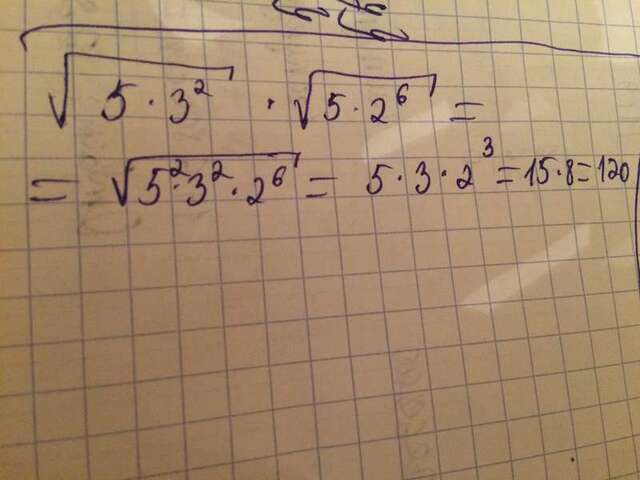 √(5 · 3²) · √(5 · 2⁶) =
= √(5² · 3² · 2⁶) = 5 · 3 · 2³ = 15 · 8 = 120